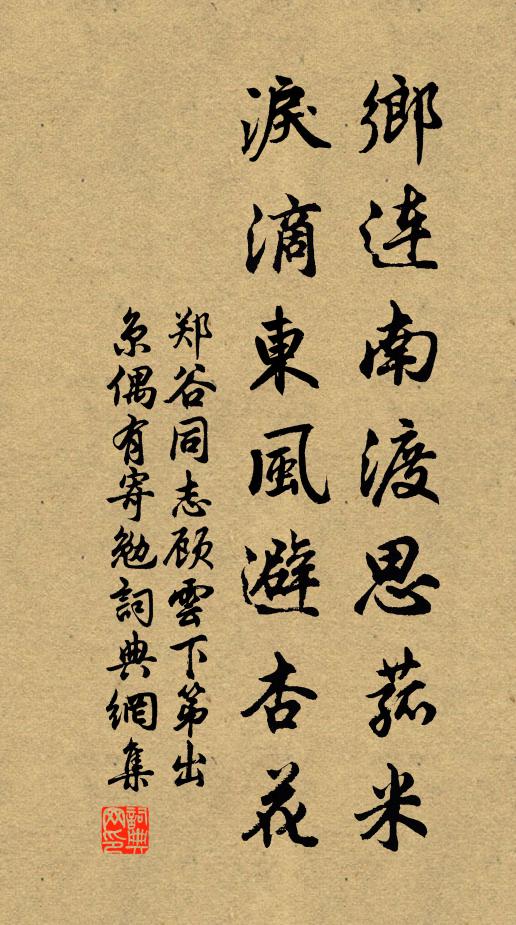 鄉連南渡思菰米
淚滴東風避杏花
郑谷同志顾雲下第出
京偶有寄勉詞典網集
詞典
网印